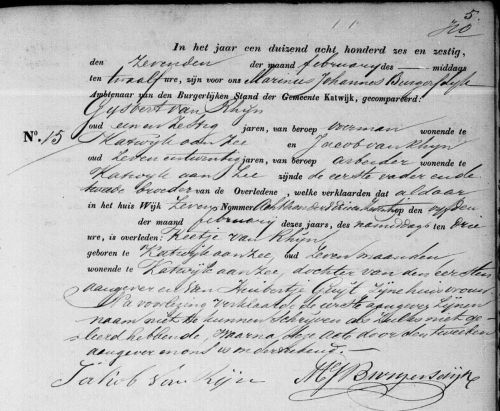 5.
In het jaar een duizend acht honderd zes en zestig,
den zevenden der maand february des — middags
ten twaalf ure, zijn voor ons Marinus Johannes Burgersdijk
Ambtenaar van den Burgerlijken Stand der Gemeente Katwijk, gecompareerd:
Gysbert van Rhyn
No. 15 oud een en zestig jaren, van beroep wonende te
Katwyk aan Zee en Jacob van Rhyn
oud zeven en twintig jaren, van beroep arbeider wonende te
Katwyk aan Zee zijnde de eerste vader en de
tweede broeder van de Overledene, welke verklaarden dat aldaar
in het huis Wijk Zeven Nommer op den vyfden
der maand february dezes jaars, des namiddags ten drie
ure, is overleden: Neeltje van Rhyn
geboren te Katwyk aan Zee, oud zeven maanden
wonende te Katwyk aan Zee, dochter van den eersten
aangever en van Huibertje zyne huisvrouw
Na voorlezing verklaarde de eerste aangever zynen
naam niet te kunnen schryven als zulks niet ge-
leerd hebbende, waarna deze acte door den tweeden
aangever en ons is onderteekend.
Jakob van Rijn MJBurgersdijk